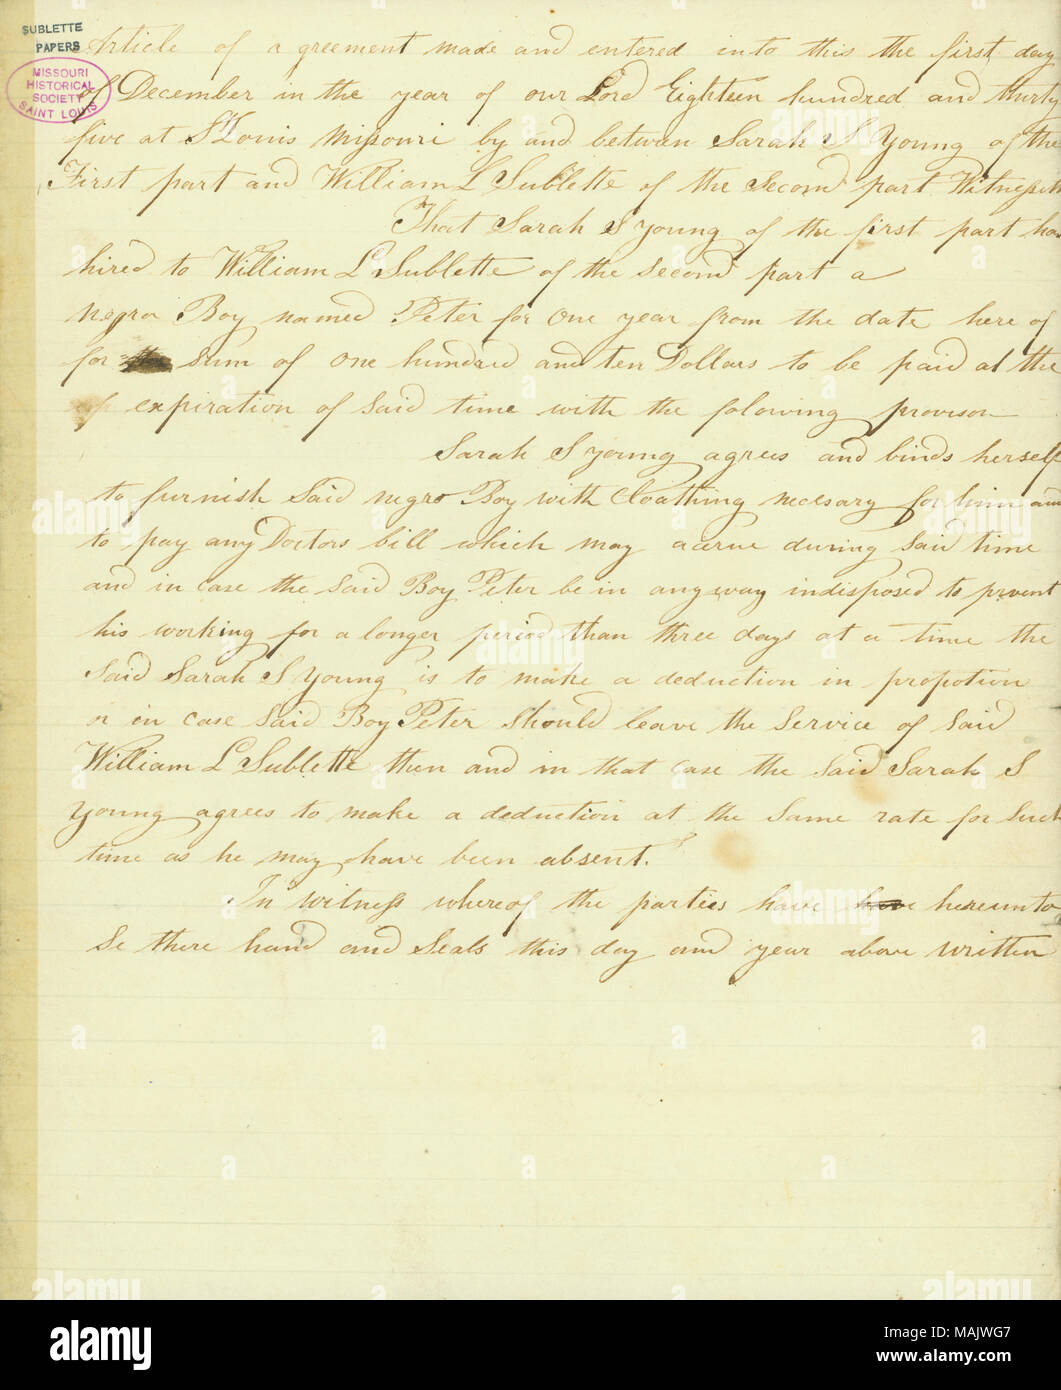 SUBLETTE
PAPERS
MISSOURI
HISTORICAL
SOCIETY
SAINT LOUIS
Article of a greement made and entered into this the first day
of December in the year of our Lord Eighteen hundred and thirty
five at St Louis Missouri by and between Sarah S Young of the
First part and William L Sublette of the Second part Witnesseth
That Sarah S Young of the first part has
hired to William L Sublette of the second part a
negro Boy named Peter for one year from the date here of
for sum of one hundred and ten Dollars to be paid at the
expiration of said time with the folowing provison
Sarah S Young agrees and binds herself
to furnish said negro Boy with Cloathing necesary for him and
to pay any Doctors bill which may acrue during said time
and in case the said Boy Peter be in anyway indisposed to prvent
his working for a longer period than three days at a time the
said Sarah S Young is to make a deduction in propotion
or in case said Boy Peter should leave the service of said
William L Sublette then and in that case the said Sarah S
Young agrees to make a deduction at the same rate for such
time as he may have been absent.
In witness whereof the parties have have hereunto
Se there hand and Seals this day and year above written
alamy
Image ID: MAJWG7
www.alamy.com